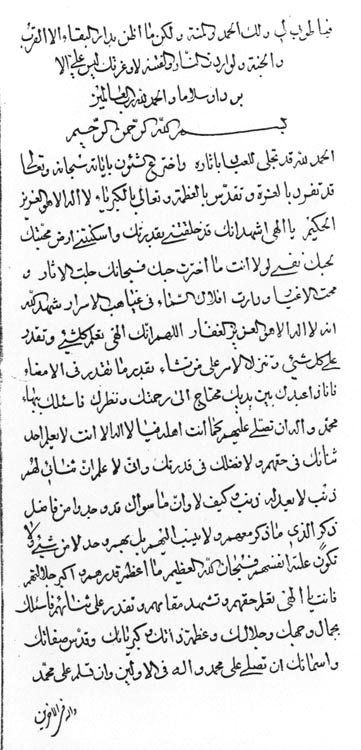 فيا طوبى لي ولك الحمد والمنة ولكن ما الظن بدار البقاء الا القرب
والجنة ولو اردت النار والفتنة لاوعزتك ليس علي الا
بردا وسلاما والحمد لله رب العالمين
بسم الله الرحمن الرحيم
الحمد لله قد تجلى للعباد باثاره واخترع شئون باياته سبحانه وتعالى
قد تفرد بالعزة وتقدس بالعظمة وتعالى بالكبرياء لا اله الا هو العزيز
الحكيم يا الهي اشهد انك قد خلقتني بقدرتك واسكنتني ارض محبتك
لحبك نفسي لولا انت ما اخترت حبك فسبحانك جلت الاثار و
محت الاغيار ودارت افلاك السماء في غياهب الاسرار شهد الله
انه لا اله الا هو العزيز الغفار اللهم انك الهي تعلم كل شيء وتقدر
على كل شيء وتنزل الامر على من تشاء بقدر ما تقدر في الامضاء
فانا ذا عبدك بين يديك محتاج الى رحمتك ونظرك فاسئلك ببهاء
محمد واله ان تصلي عليهم كما انت اهله فيا لا اله الا انت لا يعلم احد
شانك في حقهم ولا فضلك في قدرتك واني لا علم ان ثنائي لهم
ذنب لا يعدله ذنب وكيف لا وان ما سواك قد وجدوا من فاضل
ذكر الذي ما ذكر معهم ولا ينسب اليهم بل بهم وجد لا من شيء
تكون علته انفسهم فسبحان الله العظيم ما اعظم قدرهم واكبر جلالتهم
فانت يا الهي تعلم حقهم وتشهد مقامهم وتقدر على ثنائهم فاسئلك
بجمال وجهك وجلالك وعظمة ذاتك وكبريائك وقدس صفاتك
واسمائك ان تصلي على محمد واله في الاولين وان تسلم على محمد
واله في الاخرين